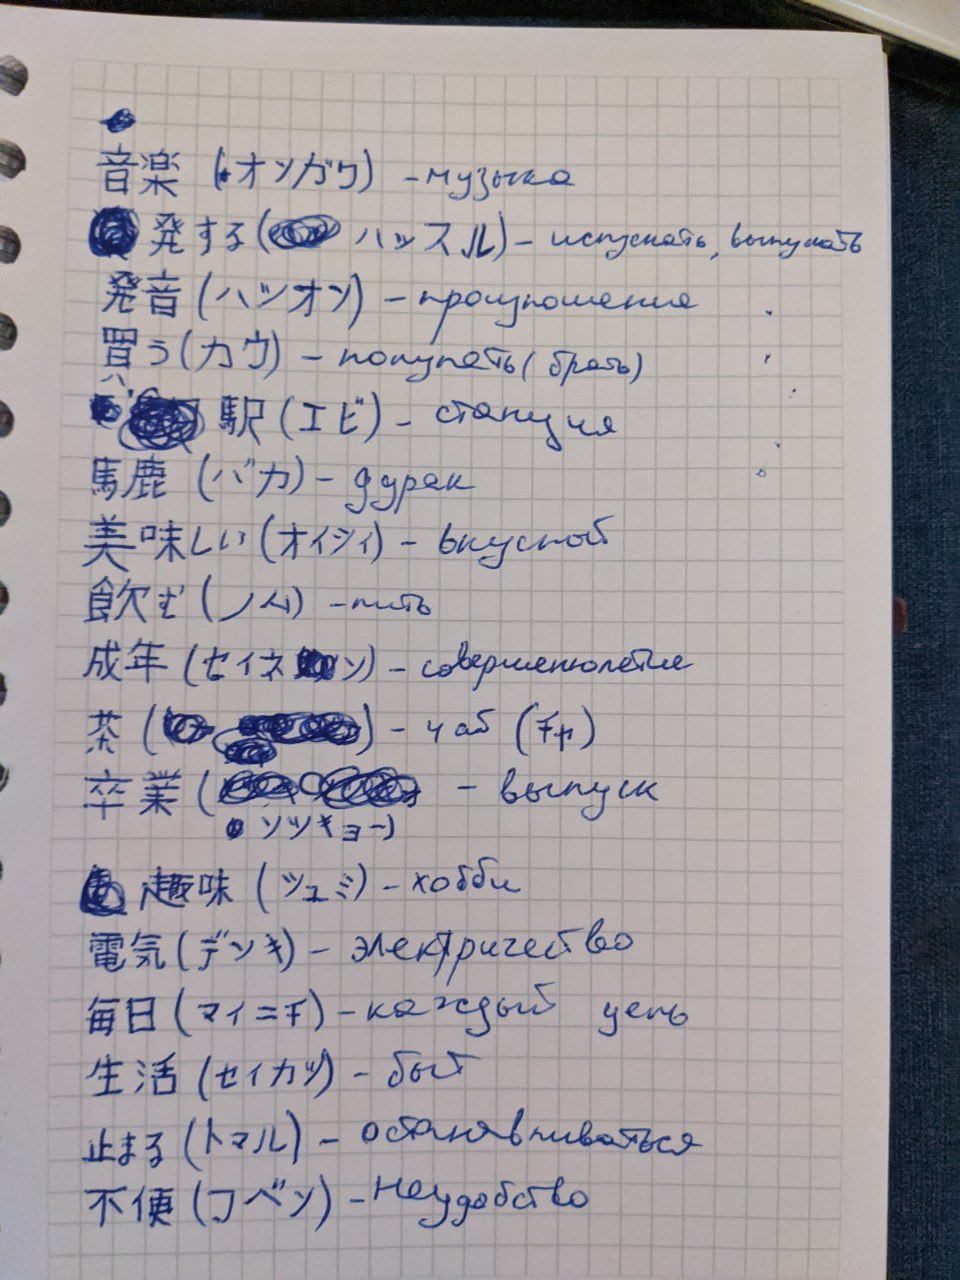 音楽 (オンガク) - музыка
発する (ハッスル) - испускать, выпускать
発音 (ハツオン) - произношение
買う (カウ) - покупать (брать)
駅 (エビ) - станция
馬鹿 (バカ) - дурак
美味しい (オイシィ) - вкусной
飲む (ノム) - пить
成年 (セイネン) - совершенолетие
茶 ( ) - чай (チャ)
卒業 ( - выпуск
ソツギョー)
趣味 (シュミ) - хобби
電気 (デンキ) - электричество
毎日 (マイニチ) - каждый день
生活 (セイカツ) - быт
止まる (トマル) - останавливаться
不便 (フベン) - неудобство